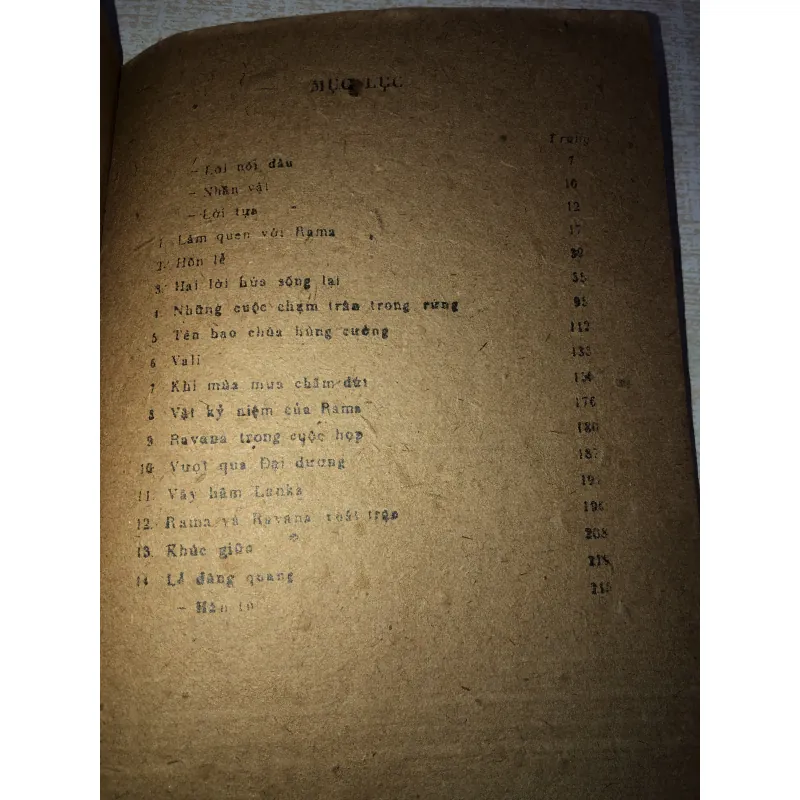 MỤC LỤC
Trang
- Lời nói đầu 7
- Nhân vật 10
- Lời tựa 12
1. Làm quen với Rama 17
2. Hôn lễ 39
3. Hai lời hứa sống lại 55
4. Những cuộc chạm trán trong rừng 95
5. Tên bạo chúa hùng cường 112
6 Vali 133
7 Khi mùa mưa chấm dứt 156
8. Vật kỷ niệm của Rama 176
9. Ravana trong cuộc họp 180
10. Vượt qua Đại dương 187
11. Vây hãm Lanka
12. Rama và Ravana xuất trận 196
13. Khúc giữa 208
14. Lễ đăng quang
-